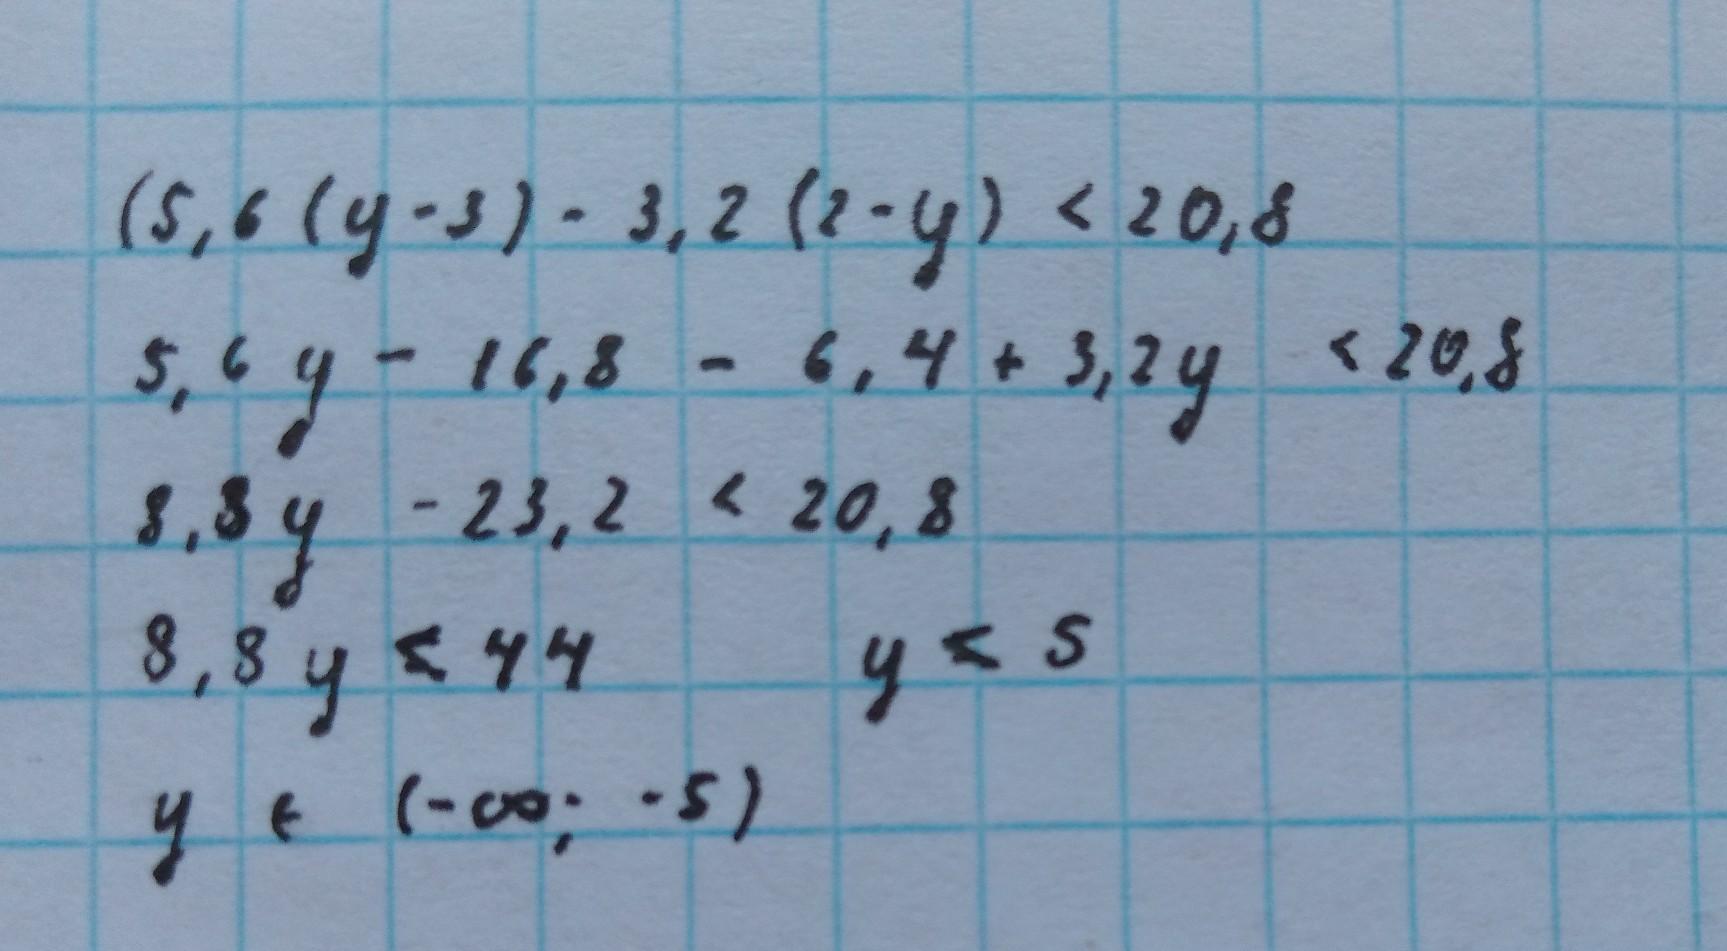 (5,6(y-3)-3,2(2-y)<20,8
5,6y-16,8-6,4+3,2y<20,8
8,8y-23,2<20,8
8,8y<44 y<5
y∈(-∞;-5)